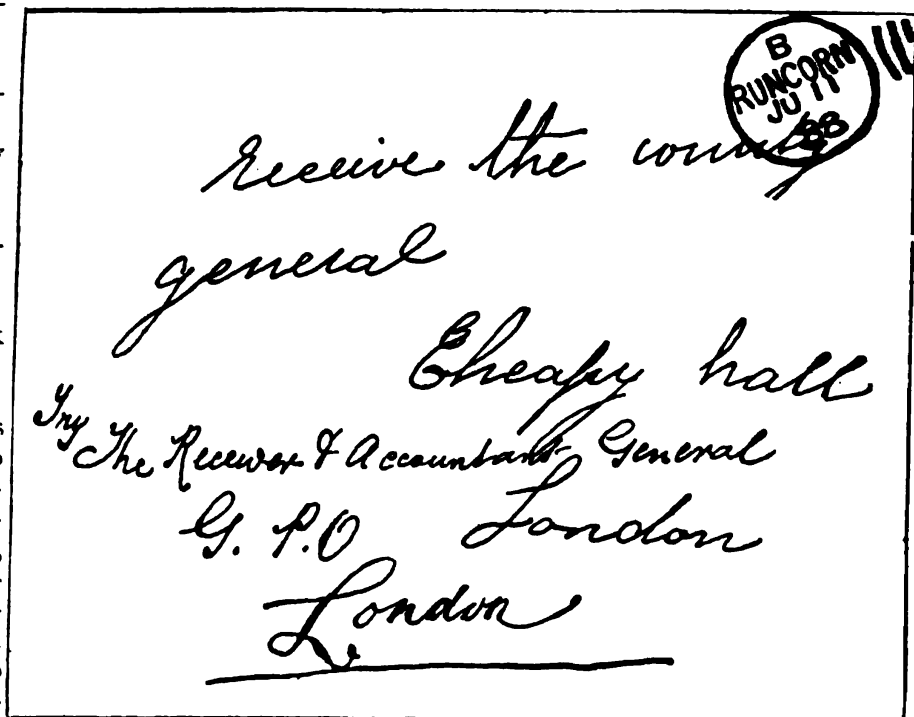 B
RUNCORN
JU 11
88
receive the county
general
Cheapy hall
Try
The Receiver & Accountant General
G. P. O London
London